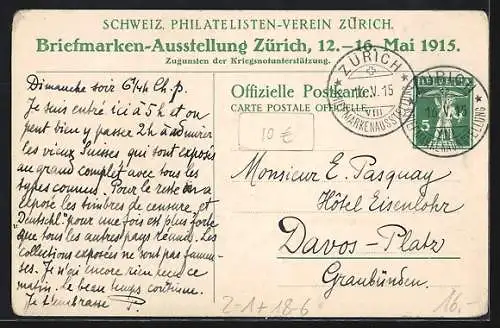 SCHWEIZ. PHILATELISTEN-VEREIN ZÜRICH.
Briefmarken-Ausstellung Zürich, 12.–16. Mai 1915.
Zugunsten der Kriegsnotunterstützung.
Offizielle Postkarte
CARTE POSTALE OFFICIELLE
ZÜRICH
16.V.15
VIII
BRIEFMARKENAUSSTELLUNG
HELVETIA
5
10 €
Dimanche soir 6¼h
Je suis entré ici à 5h et on
peut bien y passer 2h à admirer
les vieux Suisses qui sont exposés
au grand complet avec tous les
types connus. Pour le reste on a
exposé les timbres de censure, et
"Deutschl." pour une fois est plus forte
que tous les autres pays réunis. Les
collections exposées ne sont pas fameu-
ses. Je n'ai encore rien reçu ce
matin. Le beau temps continue.
Je t'embrasse P.
Monsieur E. Pasquay
Hôtel Eisenlohr
Davos-Platz
Graubünden.
2=1+18-6
16.-